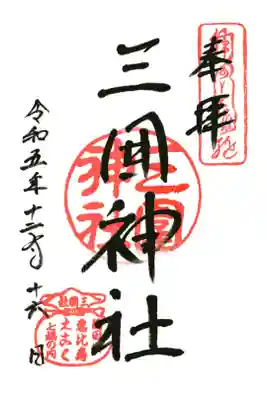 奉拝
三囲神社
令和五年十二月十六日
三囲社
恵比寿
大こく
七福の内